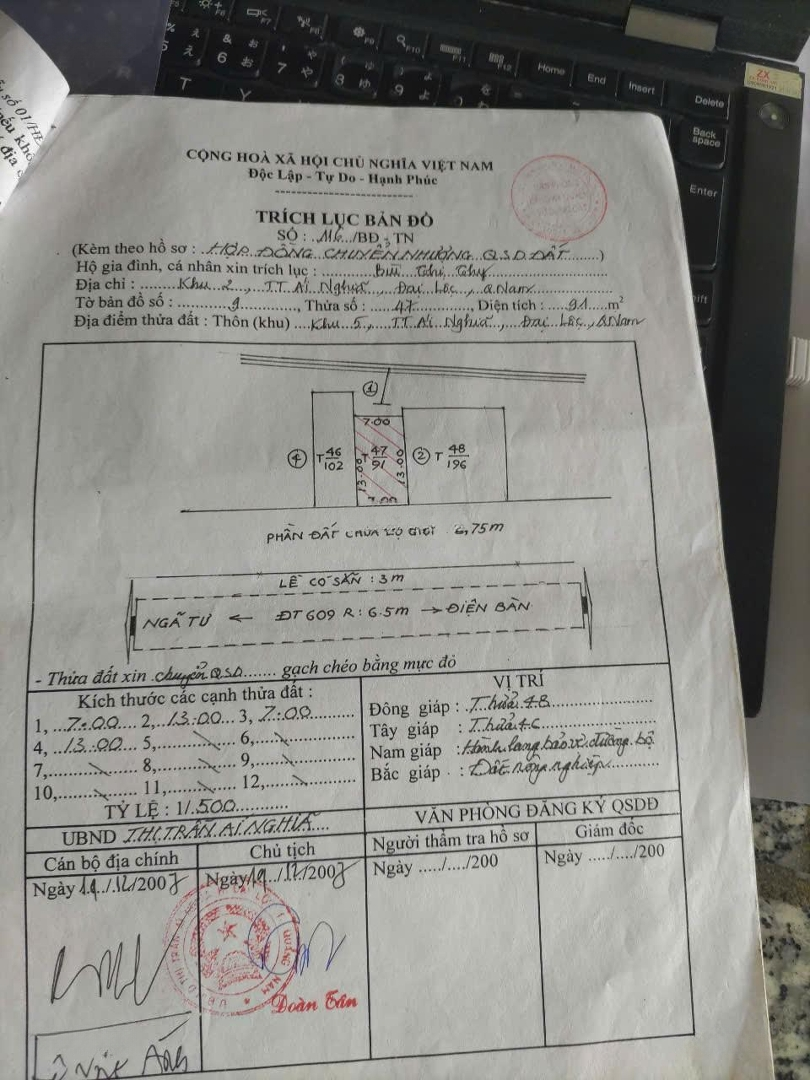 CỘNG HOÀ XÃ HỘI CHỦ NGHĨA VIỆT NAM
Độc Lập - Tự Do - Hạnh Phúc
TRÍCH LỤC BẢN ĐỒ
SỐ : 116 /BĐ - TN
(Kèm theo hồ sơ : HỢP ĐỒNG CHUYỂN NHƯỢNG Q.S.D. ĐẤT)
Hộ gia đình, cá nhân xin trích lục : Bùi Thị Thy
Địa chỉ : Khu 2, TT Ái Nghĩa, Đại Lộc, Q.Nam
Tờ bản đồ số : 9, Thửa số : 47, Diện tích : 91 m²
Địa điểm thửa đất : Thôn (khu) Khu 5, TT Ái Nghĩa, Đại Lộc, Q.Nam
1
7.00
4 T 46/102 13.00 T 47/91 13.00 2 T 48/196
7.00
PHẦN ĐẤT CHỪA LỘ GIỚI 6,75m
LỀ CÓ SẴN : 3m
NGÃ TƯ ← ĐT 609 R: 6.5m → ĐIỆN BÀN
- Thửa đất xin chuyển QSD gạch chéo bằng mực đỏ
Kích thước các cạnh thửa đất :
1, 7.00 2, 13.00 3, 7.00
4, 13.00 5, 6,
7, 8, 9,
10, 11, 12,
TỶ LỆ : 1/ 500
VỊ TRÍ
Đông giáp : Thửa 48
Tây giáp : Thửa 46
Nam giáp : Hành lang bảo vệ đường bộ
Bắc giáp : Đất nông nghiệp
UBND THỊ TRẤN ÁI NGHĨA
VĂN PHÒNG ĐĂNG KÝ QSDĐ
Cán bộ địa chính
Chủ tịch
Người thẩm tra hồ sơ
Giám đốc
Ngày 19/12/2007
Ngày 19/12/2007
Ngày ...../..../200
Ngày ...../..../200
Đoàn Tân
Home
End
Insert
Delete
Back
space
Enter